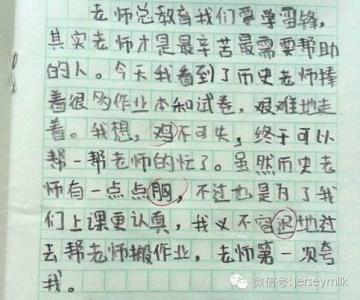 老师总教育我们要学雷锋，
其实老师才是最辛苦最需要帮助
的人。今天我看到了历史老师捧
着很多作业本和试卷，艰难地走
着。我想，鸡不可失，终于可以
帮一帮老师的忙了。虽然历史老
师有一点点胭，不过也是为了我
们上课更认真，我义不容迟地过
去帮老师搬作业，老师第一次夸
我。
微信号：jerseymilk